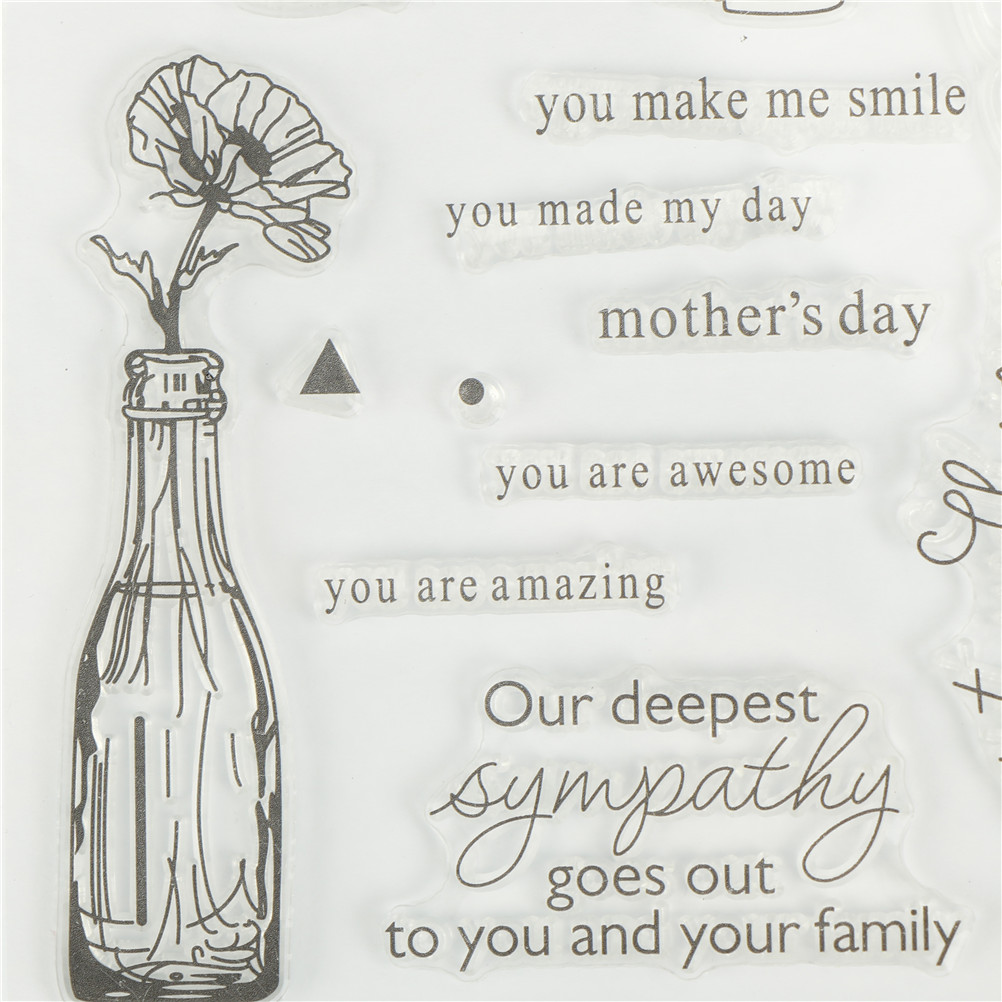 you make me smile
you made my day
mother's day
you are awesome
you are amazing
Our deepest
sympathy
goes out
to you and your family